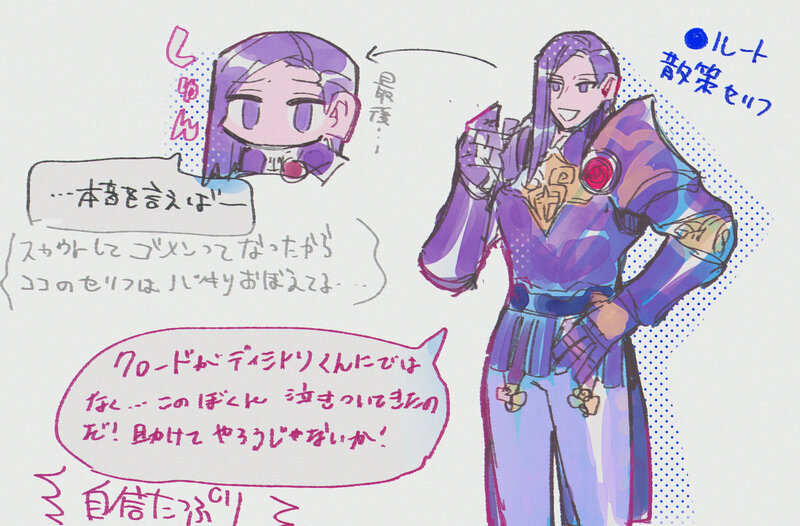 ●ルート
散策セリフ
最後…
しゅん
…本音を言えば―
スカウトして ゴメンってなったから
ココのセリフは バッキリおぼえてる…
クロードがディミトリくんにでは
なく… このぼくに 泣きついてきたの
だ! 助けて やろうじゃないか!
自信たっぷり